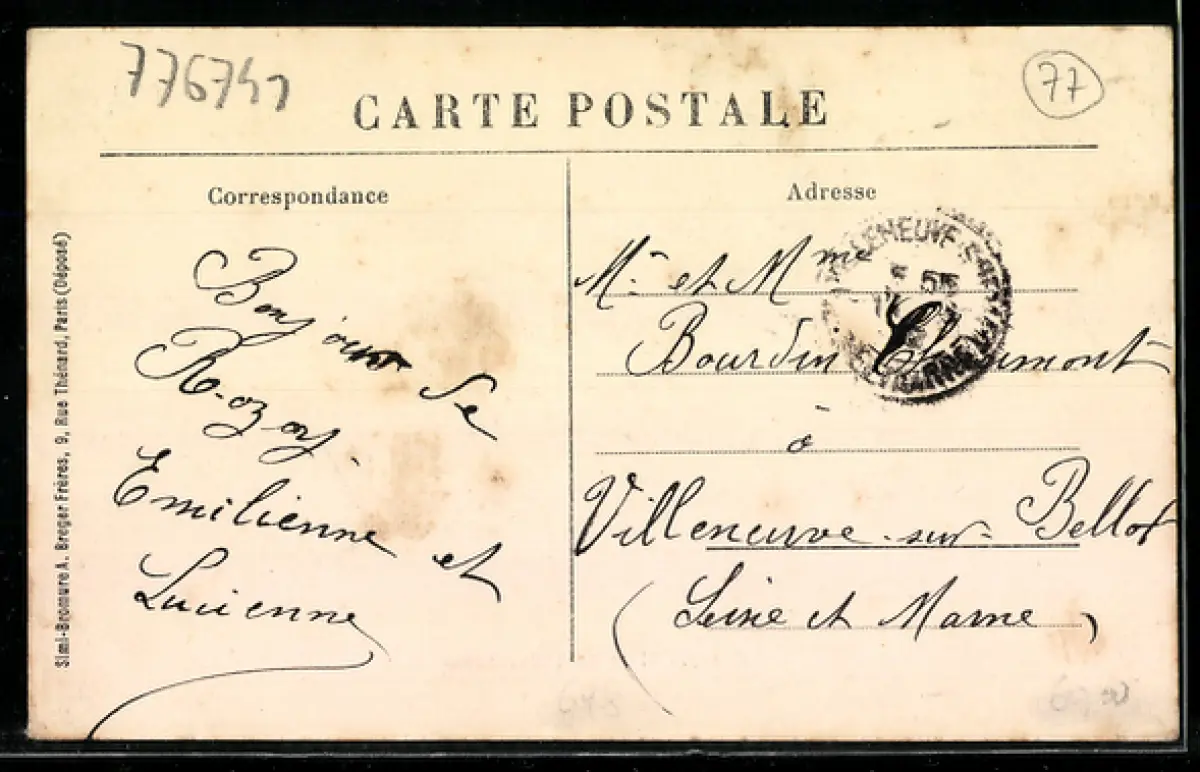 776741
77
CARTE POSTALE
Correspondance
Adresse
Bonjour de
Rozoy.
Emilienne et
Lucienne
Mr et Mme
Bourdin Chaumont
à
Villeneuve-sur-Bellot
(Seine et Marne)
VILLENEUVE-S-BELLOT
5 55
SEINE-ET-MARNE
Simi-Bromure A. Breger Frères, 9, Rue Thénard, Paris (Déposé)